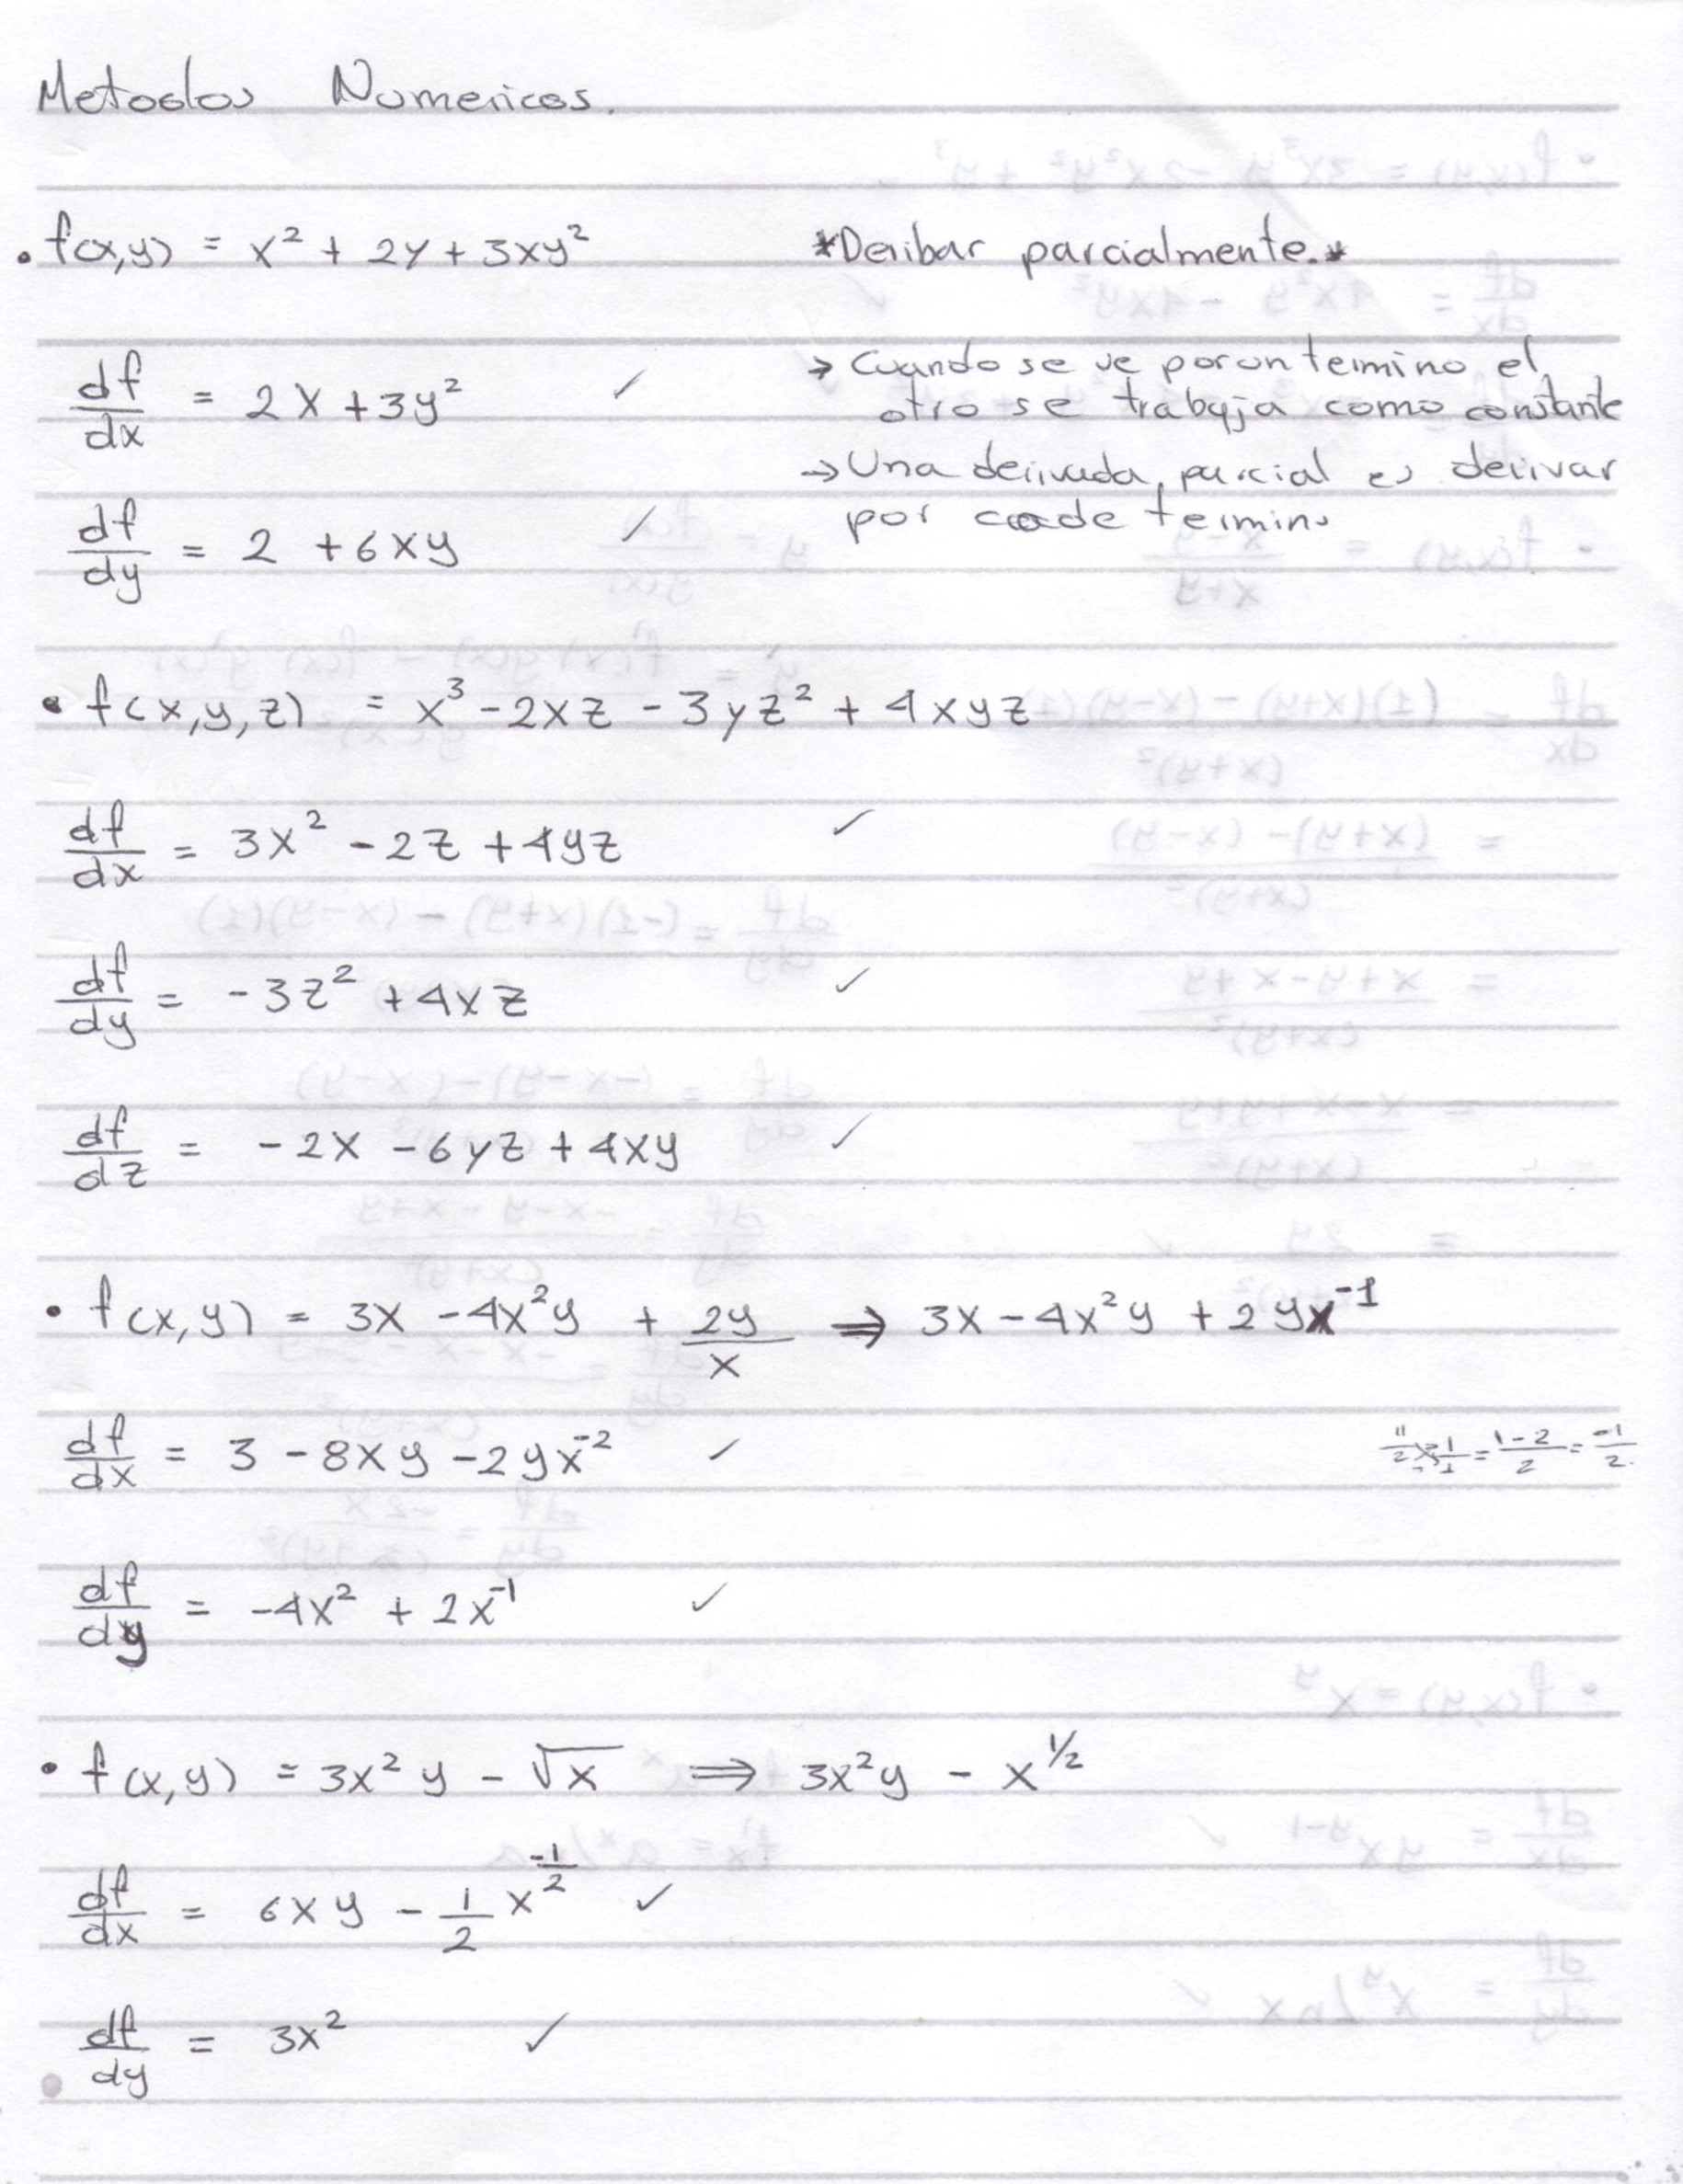 Metodos Numericos.
• f(x,y) = x² + 2y + 3xy²
*Deribar parcialmente.*
df/dx = 2x + 3y² ✓
→ Cuando se ve por un termino el
otro se trabaja como constante
→ Una derivada parcial es derivar
por cade termino
df/dy = 2 + 6xy ✓
• f(x,y,z) = x³ - 2xz - 3yz² + 4xyz
df/dx = 3x² - 2z + 4yz ✓
df/dy = -3z² + 4xz ✓
df/dz = -2x - 6yz + 4xy ✓
• f(x,y) = 3x - 4x²y + 2y/x ⇒ 3x - 4x²y + 2yx⁻¹
df/dx = 3 - 8xy - 2yx⁻² ✓
= (1-2)/2 = -1/2
df/dy = -4x² + 2x⁻¹ ✓
• f(x,y) = 3x²y - √x ⇒ 3x²y - x^1/2
df/dx = 6xy - 1/2 x^-1/2 ✓
df/dy = 3x² ✓